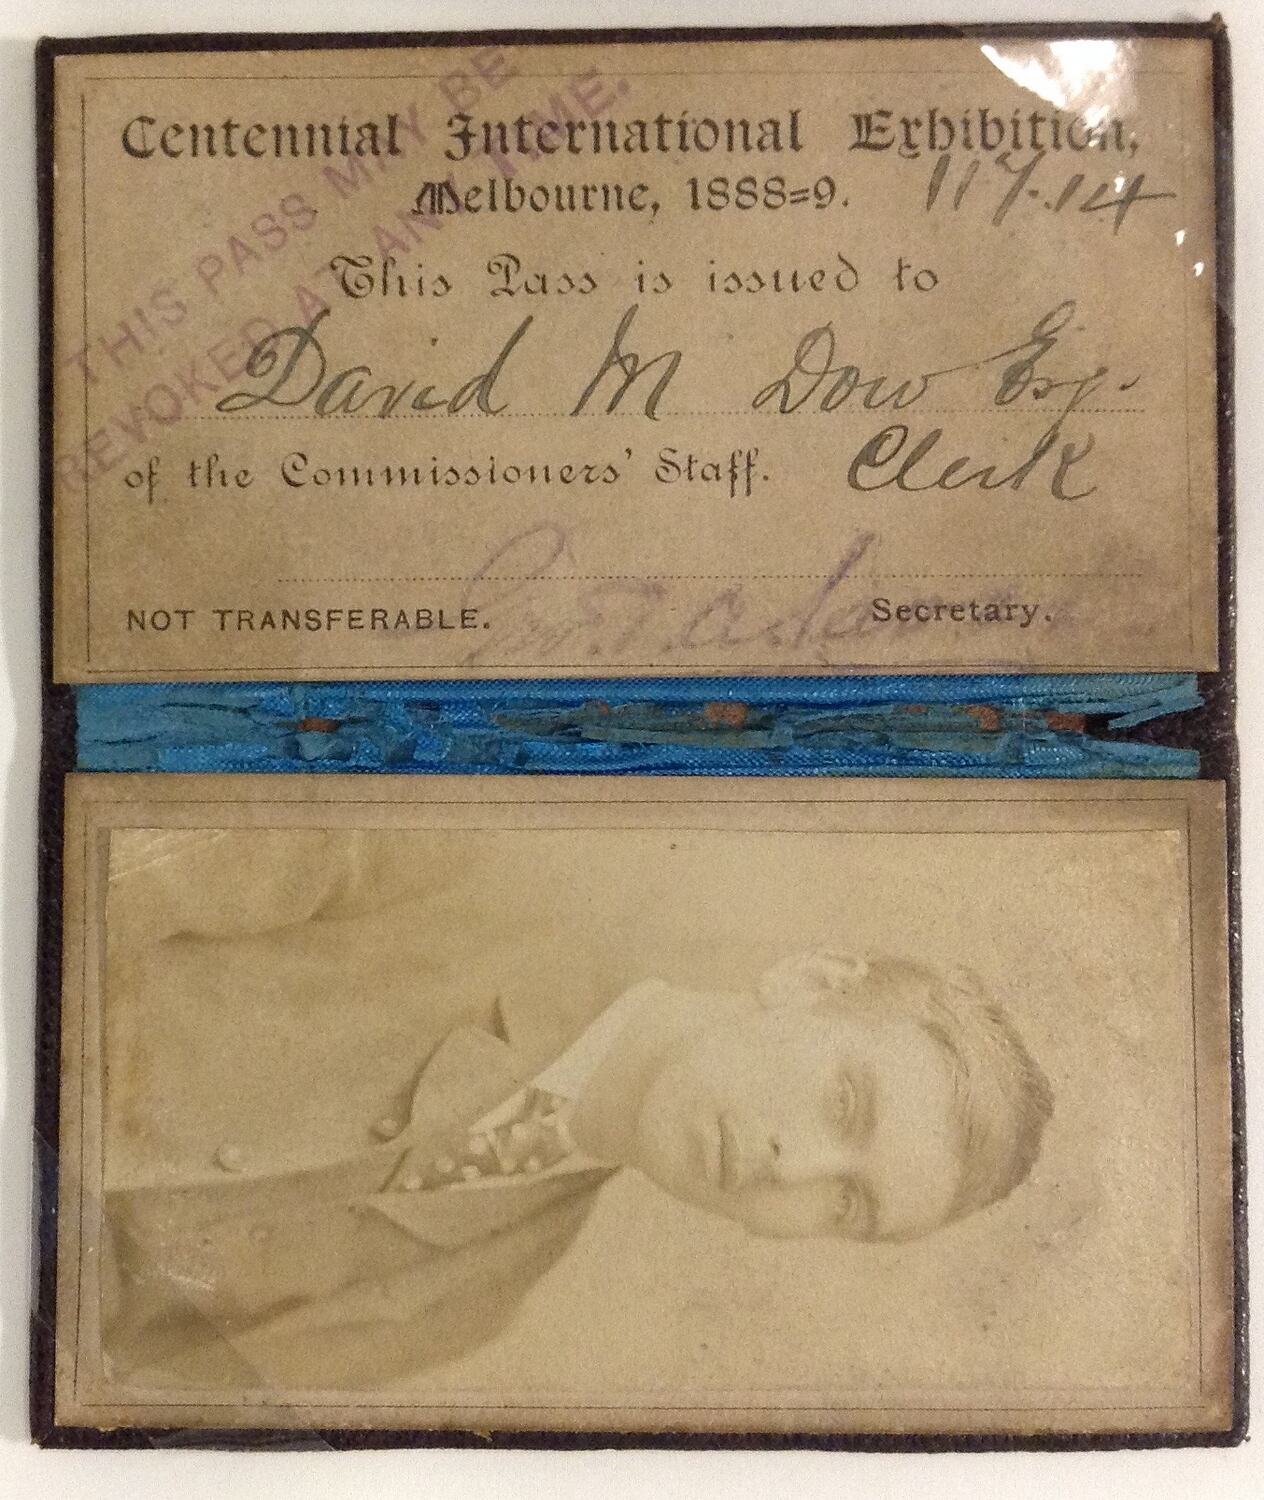 THIS PASS MAY BE
REVOKED AT ANY TIME.
Centennial International Exhibition,
Melbourne, 1888=9.
This Pass is issued to
David M Dow Esq.
of the Commissioners' Staff. Clerk
NOT TRANSFERABLE. Secretary.